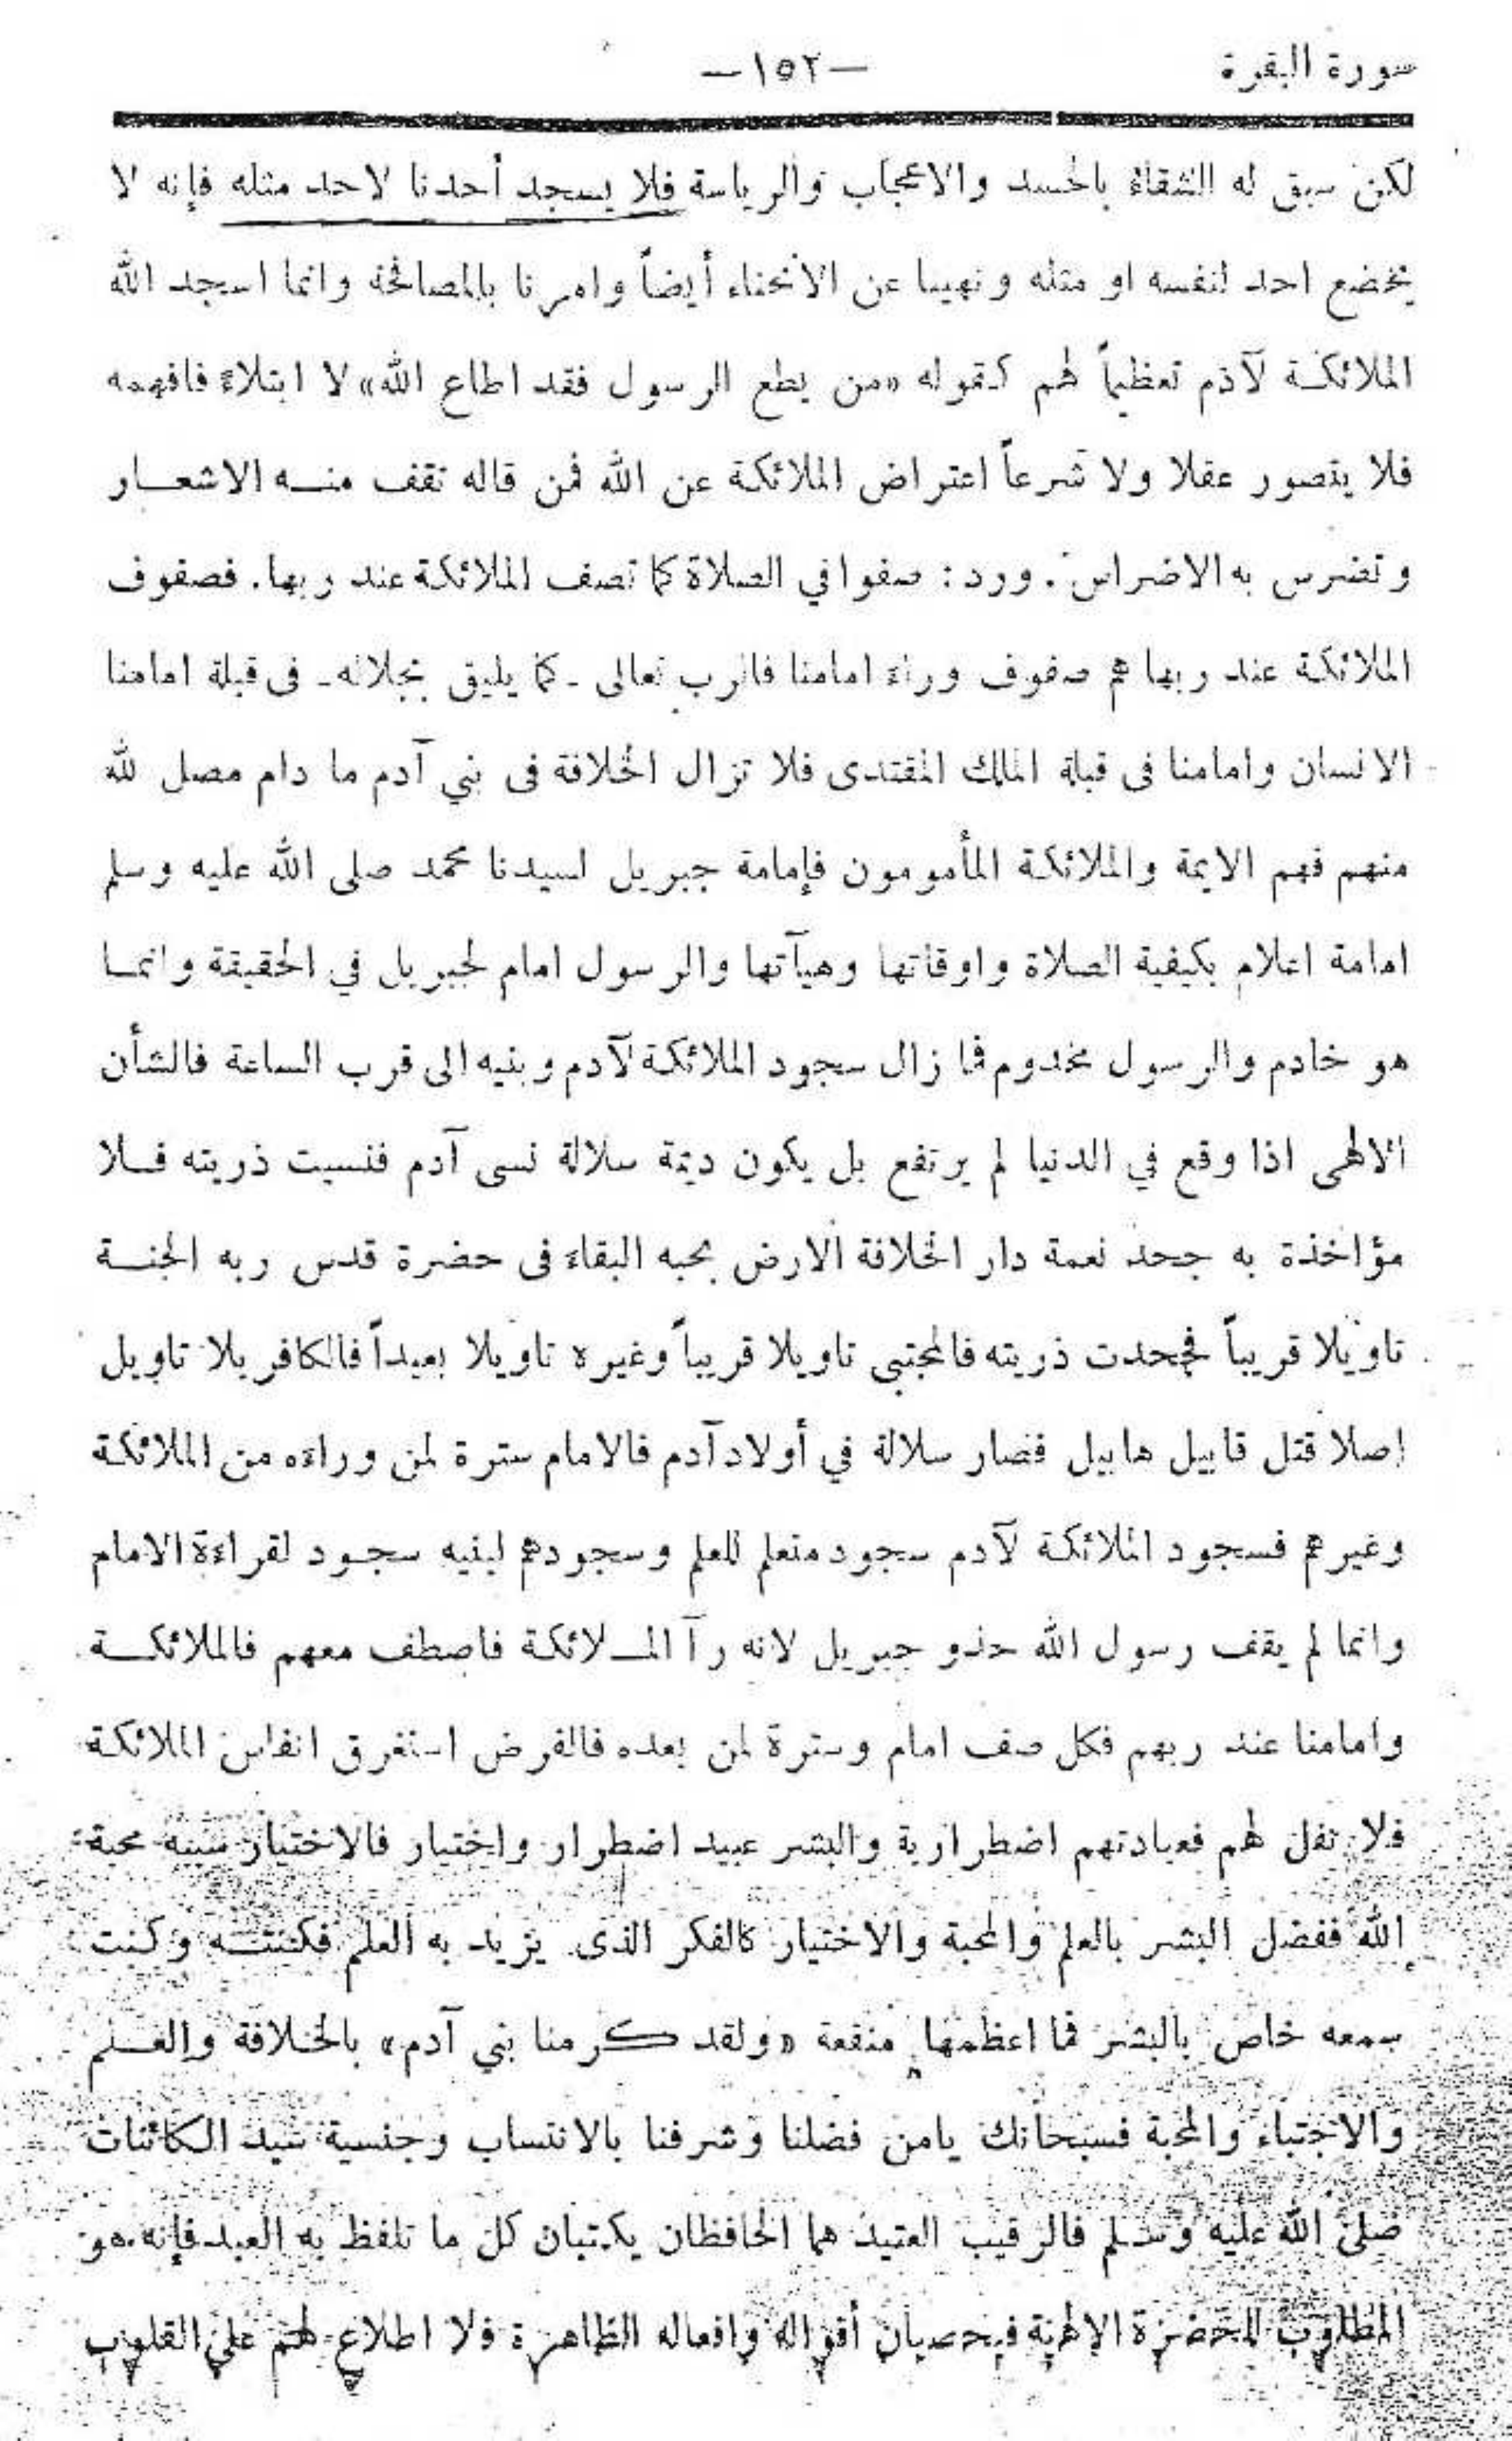 سورة البقرة
—١٥٢—
لكن سبق له الشقاء بالحسد والاعجاب والرياسة فلا يسجد أحدنا لاحد مثله فإنه لا
يخضع احد لنفسه او مثله ونهينا عن الانحناء أيضاً وامرنا بالمصافحة وانما اسجد الله
الملائكة لآدم تعظيماً لهم كقوله «من يطع الرسول فقد اطاع الله» لا ابتلاء فافهمه
فلا يتصور عقلا ولا شرعاً اعتراض الملائكة عن الله فمن قاله تقف منه الاشعار
وتضرس به الاضراس. ورد: صفوا في الصلاة كما تصف الملائكة عند ربها. فصفوف
الملائكة عند ربها هم صفوف وراء امامنا فالرب تعالى ـ كما يليق بجلاله ـ فى قبلة امامنا
الانسان وامامنا فى قبلة الملك المقتدى فلا تزال الخلافة فى بني آدم ما دام مصل لله
منهم فهم الايمة والملائكة المأمومون فإمامة جبريل لسيدنا محمد صلى الله عليه وسلم
امامة اعلام بكيفية الصلاة واوقاتها وهيآتها والرسول امام لجبريل في الحقيقة وانما
هو خادم والرسول مخدوم فما زال سجود الملائكة لآدم وبنيه الى قرب الساعة فالشأن
الالهى اذا وقع في الدنيا لم يرتفع بل يكون ديمة سلالة نسى آدم فنسيت ذريته فلا
مؤاخذة به جحد نعمة دار الخلافة الارض بحبه البقاء فى حضرة قدس ربه الجنة
تاويلا قريباً فجحدت ذريته فالمجتبى تاويلا قريباً وغيره تاويلا بعيداً فالكافر بلا تاويل
اصلا قتل قابيل هابيل فصار سلالة في أولاد آدم فالامام سترة لمن وراءه من الملائكة
وغيرهم فسجود الملائكة لآدم سجود متعلم للعلم وسجودهم لبنيه سجود لقراءة الامام
وانما لم يقف رسول الله حذو جبريل لانه رآ الملائكة فاصطف معهم فالملائكة
وامامنا عند ربهم فكل صف امام وسترة لمن بعده فالفرض استغرق انفاس الملائكة
فلا نفل لهم فعبادتهم اضطرارية والبشر عبيد اضطرار واختيار فالاختيار سببه محبة
الله ففضل البشر بالعلم والمحبة والاختيار كالفكر الذى يزيد به العلم فكنته وكنت
سمعه خاص بالبشر فما اعظمها منقعة «ولقد كرمنا بني آدم» بالخلافة والعلم
والاجتباء والمحبة فسبحانك يامن فضلنا وشرفنا بالانتساب وجنسية سيد الكائنات
صلى الله عليه وسلم فالرقيب العتيد هما الحافظان يكتبان كل ما تلفظ به العبد فإنه هو
المطلوب للحضرة الالهية فيحصيان أقواله وافعاله الظاهرة فلا اطلاع لهم على القلوب